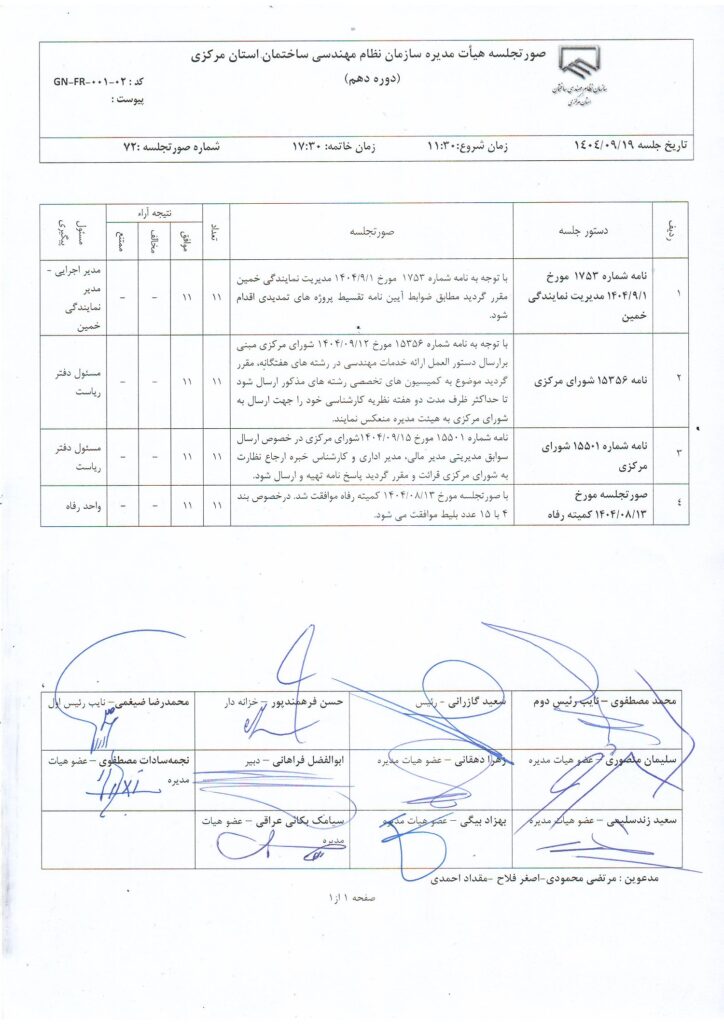 صورتجلسه هیأت مدیره سازمان نظام مهندسی ساختمان استان مرکزی
(دوره دهم)
سازمان نظام مهندسی ساختمان
استان مرکزی
کد : GN-FR-۰۰۱-۰۲
پیوست :
تاریخ جلسه ۱۴۰۴/۰۹/۱۹ زمان شروع:۱۱:۳۰ زمان خاتمه: ۱۷:۳۰ شماره صورتجلسه :۷۲
ردیف دستور جلسه صورتجلسه تعداد نتیجه آراء مسئول پیگیری
موافق مخالف ممتنع
۱
نامه شماره ۱۷۵۳ مورخ
۱۴۰۴/۹/۱ مدیریت نمایندگی
خمین
با توجه به نامه شماره ۱۷۵۳ مورخ ۱۴۰۴/۹/۱ مدیریت نمایندگی خمین
مقرر گردید مطابق ضوابط آیین نامه تقسیط پروژه های تمدیدی اقدام
شود.
۱۱ ۱۱ - -
مدیر اجرایی -
مدیر
نمایندگی
خمین
۲
نامه ۱۵۳۵۶ شورای مرکزی
با توجه به نامه شماره ۱۵۳۵۶ مورخ ۱۴۰۴/۰۹/۱۲ شورای مرکزی مبنی
برارسال دستور العمل ارائه خدمات مهندسی در رشته های هفتگانه، مقرر
گردید موضوع به کمیسیون های تخصصی رشته های مذکور ارسال شود
تا حداکثر ظرف مدت دو هفته نظریه کارشناسی خود را جهت ارسال به
شورای مرکزی به هیئت مدیره منعکس نمایند.
۱۱ ۱۱ - -
مسئول دفتر
ریاست
۳
نامه شماره ۱۵۵۰۱ شورای
مرکزی
نامه شماره ۱۵۵۰۱ مورخ ۱۴۰۴/۰۹/۱۵شورای مرکزی در خصوص ارسال
سوابق مدیریتی مدیر مالی، مدیر اداری و کارشناس خبره ارجاع نظارت
به شورای مرکزی قرائت و مقرر گردید پاسخ نامه تهیه و ارسال شود.
۱۱ ۱۱ - -
مسئول دفتر
ریاست
۴
صورتجلسه مورخ
۱۴۰۴/۰۸/۱۳ کمیته رفاه
با صورتجلسه مورخ ۱۴۰۴/۰۸/۱۳ کمیته رفاه موافقت شد. درخصوص بند
۴ با ۱۵ عدد بلیط موافقت می شود.
۱۱ ۱۱ - -
واحد رفاه
محمد مصطفوی – نایب رئیس دوم سعید گازرانی - رئیس حسن فرهمندپور – خزانه دار محمدرضا ضیغمی – نایب رئیس اول
سلیمان منصوری – عضو هیات مدیره زهرا دهقانی – عضو هیات مدیره ابوالفضل فراهانی – دبیر نجمه‌سادات مصطفوی – عضو هیات
مدیره
سعید زندسلیمی – عضو هیات مدیره بهزاد بیگی – عضو هیات مدیره سیامک یکانی عراقی – عضو هیات
مدیره
مدعوین : مرتضی محمودی-اصغر فلاح -مقداد احمدی
صفحه ۱ از۱